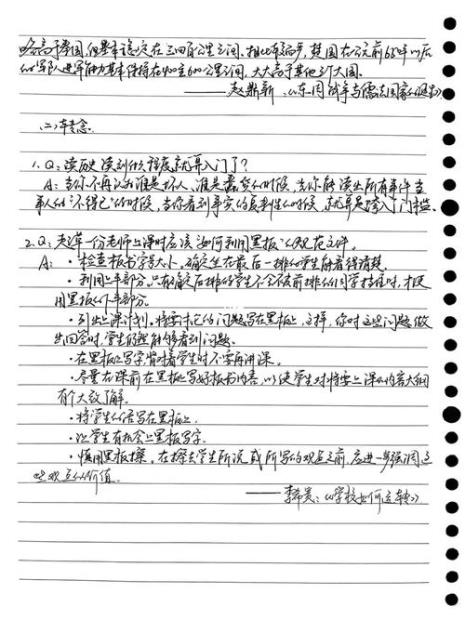 略高于秦国,但基本稳定在三四百公里之间。相比较而言,楚国在公元前634年以后
的军队进军能力基本保持在400至600公里之间,大大高于其他3个大国。
——赵鼎新《东周战争与儒法国家的诞生》
(二)转念。
1. Q:读历史读到什么程度就算入门了?
A:当你不再认为谁是坏人、谁是蠢蛋的时候,当你能读出所有事件当
事人的“不得已”的时候,当你看到事实的复利生的时候,就算是跨入门槛。
2. Q:老师上课时应该如何利用黑板
A: ·检查板书字号大小,确定坐在最后一排的学生能看得清楚。
·利用上半部分,只有确定后排的学生不会被前排的同学挡住时,才使
用黑板的下半部分。
·列出上课计划。将要讨论的问题写在黑板上,这样,你对这些问题做
出回答时,学生仍然能够看到问题。
·在黑板上写字背对着学生时不要讲课。
·尽量在课前在黑板上写好板书内容,以使学生对将要上课的内容大纲
有个大致了解。
·将学生的话写在黑板上。
·让学生有机会上黑板写字。
·慎用黑板擦,在擦去学生所说或所写的观点之前,应进一步强调这
些观点的价值。
——李希贵:《学校如何运转》